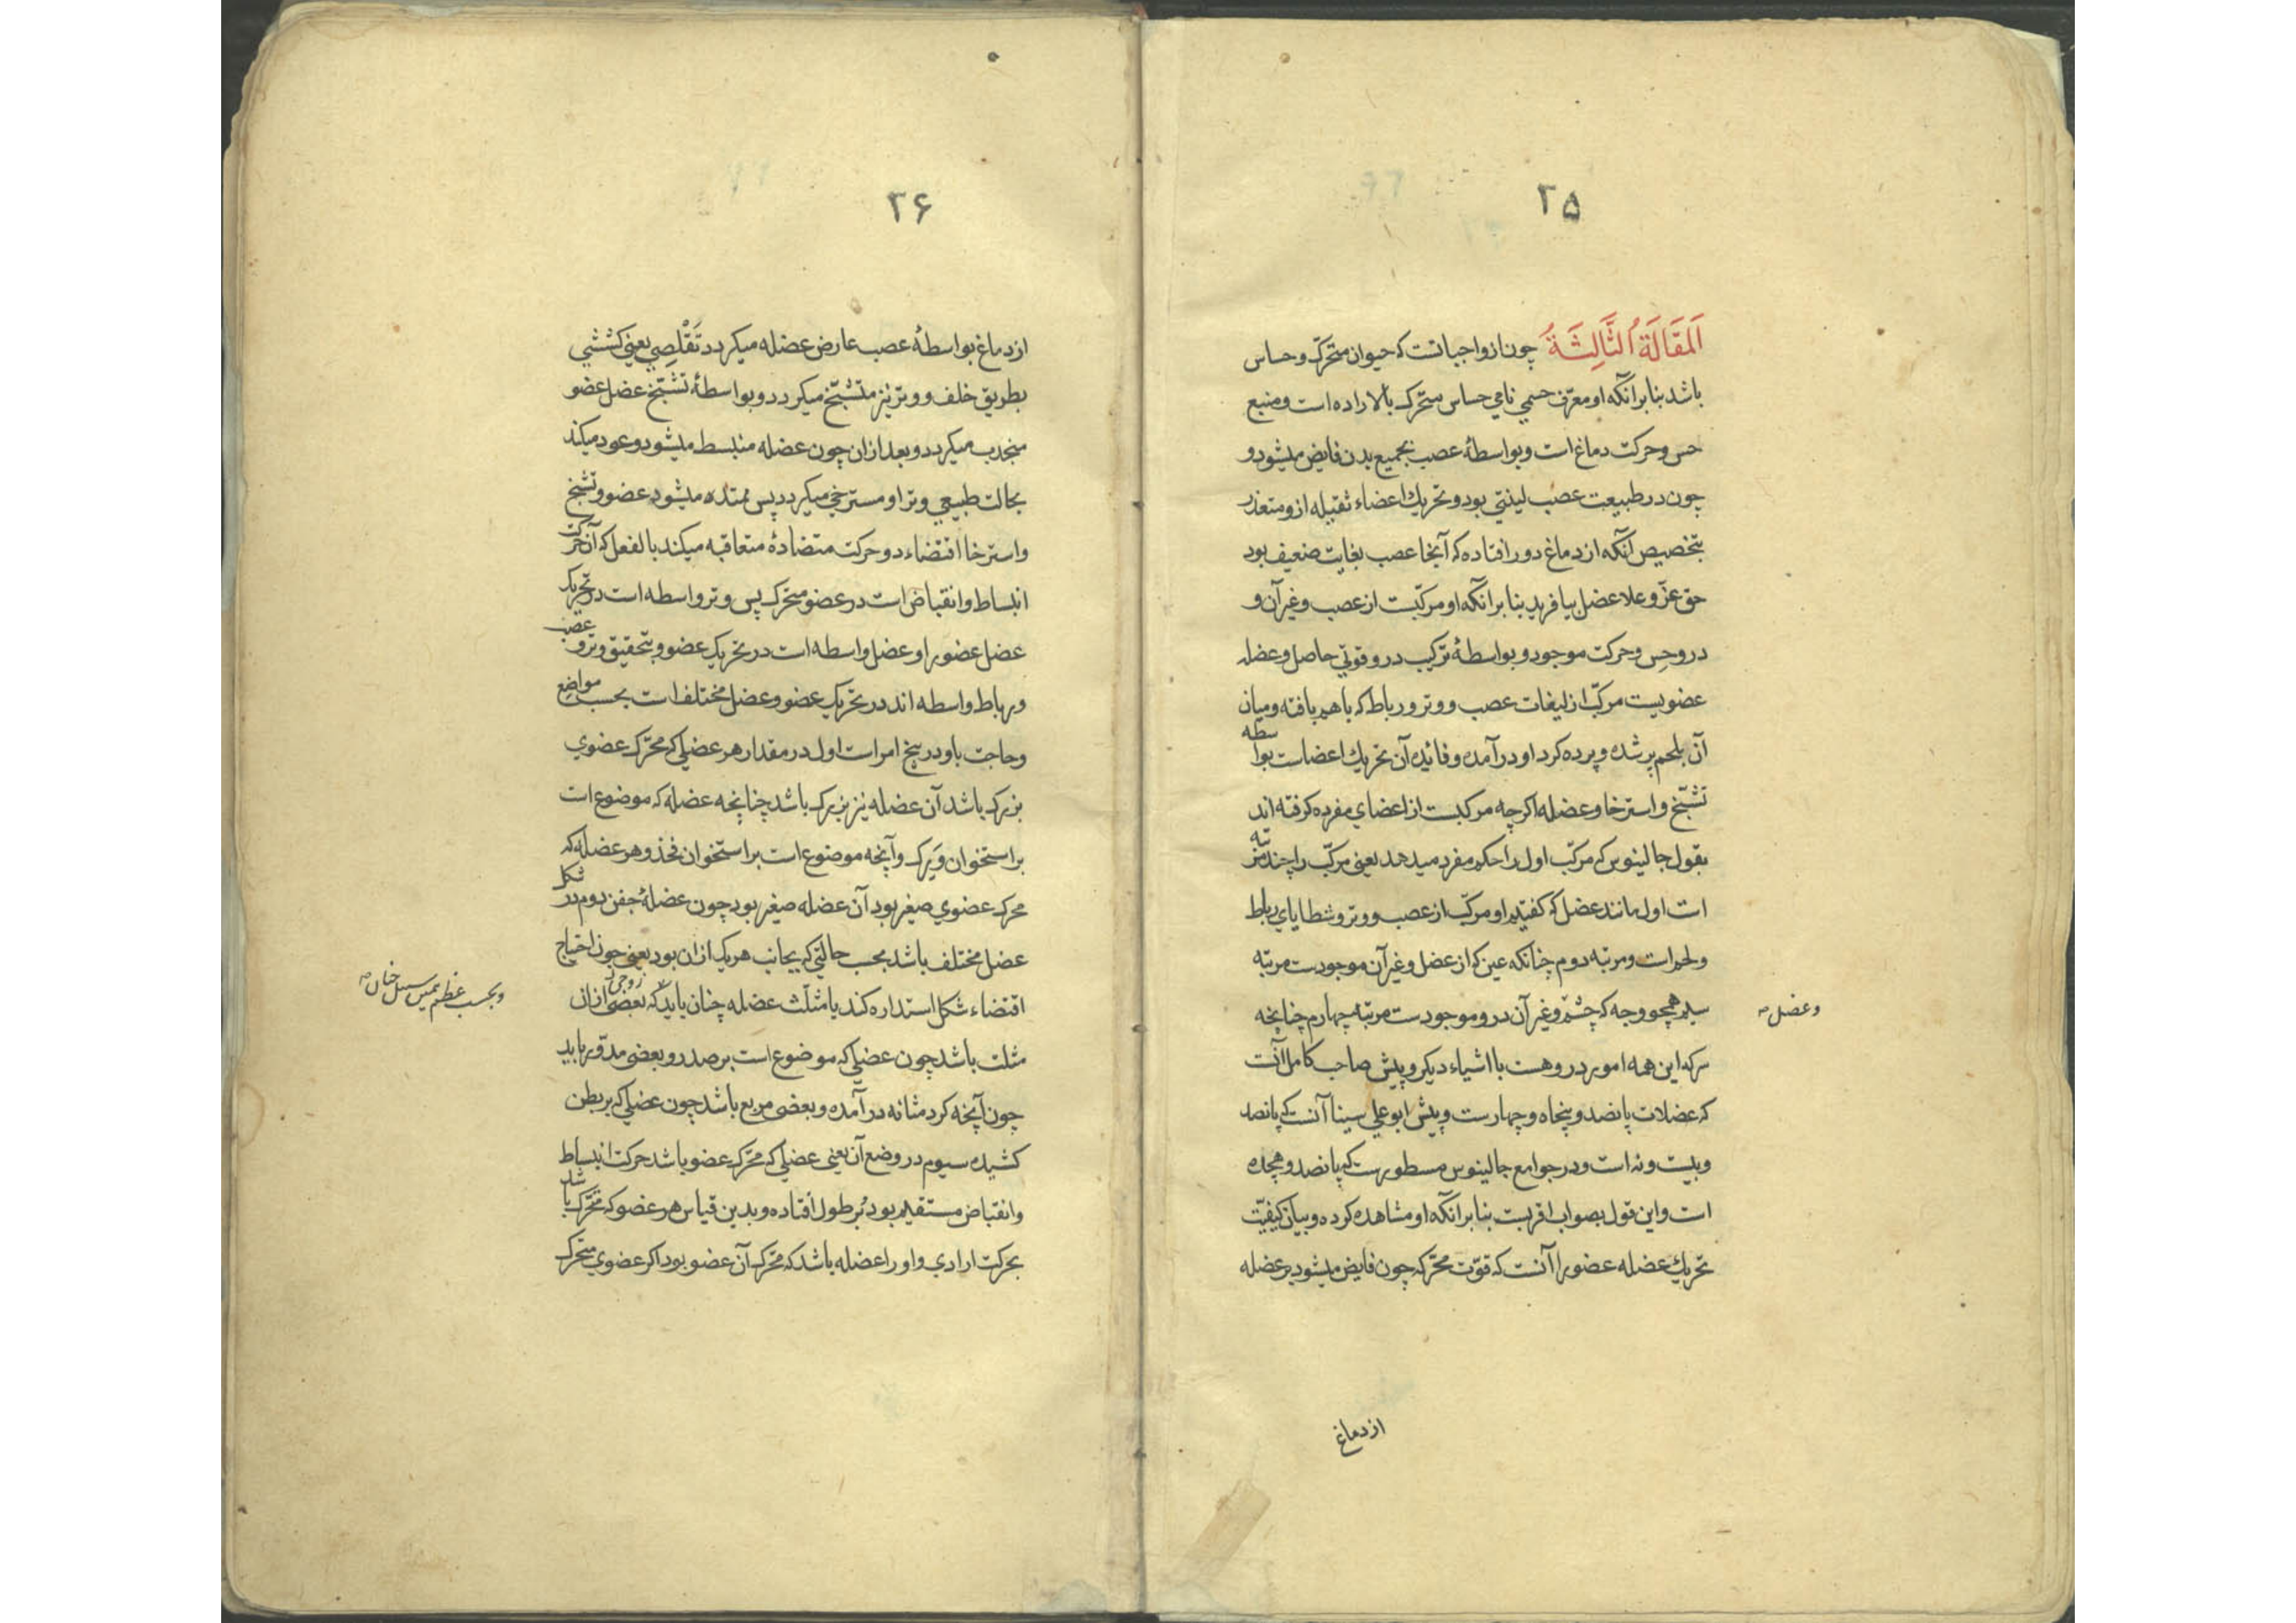 ۲۵
اَلمَقَالَةُ الثَّالِثَةُ چون از واجباتست که حیوان متحرک و حساس
باشد بنابر آنکه او معرّف جسمی نامی حساس متحرک بالاراده است و منبع
حس و حرکت دماغ است و بواسطۀ عصب بجمیع بدن فایض میشود و
چون در طبیعت عصب لینتی بود و تحریک اعضاء ثقیله ازو متعذر
بتخصیص آنکه از دماغ دور افتاده که آنجا عصب بغایت ضعیف بود
حق عزّ و علا عضل بیافرید بنابر آنکه او مرکبّست از عصب و غیر آن و
درو حِس و حرکت موجود و بواسطۀ ترکیب درو قوتی حاصل و عضله
عضویست مرکبّ از لیفات عصب و وتر و رباط که باهم بافته و میان
آن بلحم پر شده و پرده کرد او در آمده و فائده آن تحریک اعضاست بواسطه
تشبّخ و استرخا و عضله اکرچه مرکبست از اعضای مفرده کرفته اند
بقول جالینوس که مرکبّ اول را حکم مفرد میدهد یعنی مرکبّ را چند مرتبه
است اول مانند عضل که کفتیم او مرکبّ از عصب و وتر و شظایای رباط
ولحم است و مرتبه دوم چنانکه عین که از عضل و غیر آن موجودست مرتبّه
سیم همچو وجه که چشم و غیر آن درو موجودست مرتبّه چهارم چنانچه
وعضل صه
سر که این همه امور درو هست با اشیاء دیکر و پیش صاحب کامل آنست
که عضلات پانصد و پنجاه و چهارست و پیش ابوعلی سینا آنست که پانصد
و بیست و نه است و در جوامع جالینوس مسطورست که پانصد و هجده
است و این قول بصواب اقربست بنابر آنکه او مشاهده کرده و بیان کیفیّت
تحریک عضله عضو را آنست که قوّت محرّکه چون فایض میشود بر عضله
از دماغ
۲۶
از دماغ بواسطۀ عصب عارض عضله میکردد تَقَلُّصِی یعنی کششی
بطریق خلف و وتر نیز متشبّخ میکردد و بواسطۀ تشبّخ عضل عضو
منجذب میکردد و بعد ازان چون عضله منبسط میشود و عود میکند
بحالت طبیعی وتر او مسترخی میکردد پس ممتد میشود عضو و تشبخ
و استرخا اقتضاء دو حرکت متضادۀ متعاقبه میکند بالفعل که آن حرکت
انبساط و انقباض است در عضو متحرک پس وتر واسطه است در تحریک
عضل عضو را و عضل واسطه است در تحریک عضو و بتحقیق وتر و عصب
و رباط واسطه اند در تحریک عضو و عضل مختلف است بحسب مواضع
و حاجت باو در پنج امر است اول در مقدار هر عضلی که محرّک عضوی
بزرک باشد آن عضله نیز بزرک باشد چنانچه عضله که موضوع است
بر استخوان وَرِک و آنچه موضوع است بر استخوان فخذ و هر عضله که
محرک عضوی صغیر بود آن عضله صغیر بود چون عضلۀ جفن دوم در شکل
عضل مختلف باشد بحسب حالتی که بجانب هریک ازان بود یعنی چون احتیاج
اقتضاء شکل استداره کند یا مثلّث عضله چنان باید که بعضی ازان
مثلث باشد چون عضلی که موضوع است بر صدر و بعضی مدوّر باید
چون آنچه کرد مثانه در آمده و بعضی مربع باشد چون عضلی که بر بطن
کشیده سیوم در وضع آن یعنی عضلی که محرّک عضو باشد حرکت انبساط
و انقباض مستقیم بود بر طول اُفتاده و بدین قیاس هر عضو که متحرک باشد
بحرکت ارادی و او را عضله باشد که محرّک آن عضو بود اکر عضوی متحرک